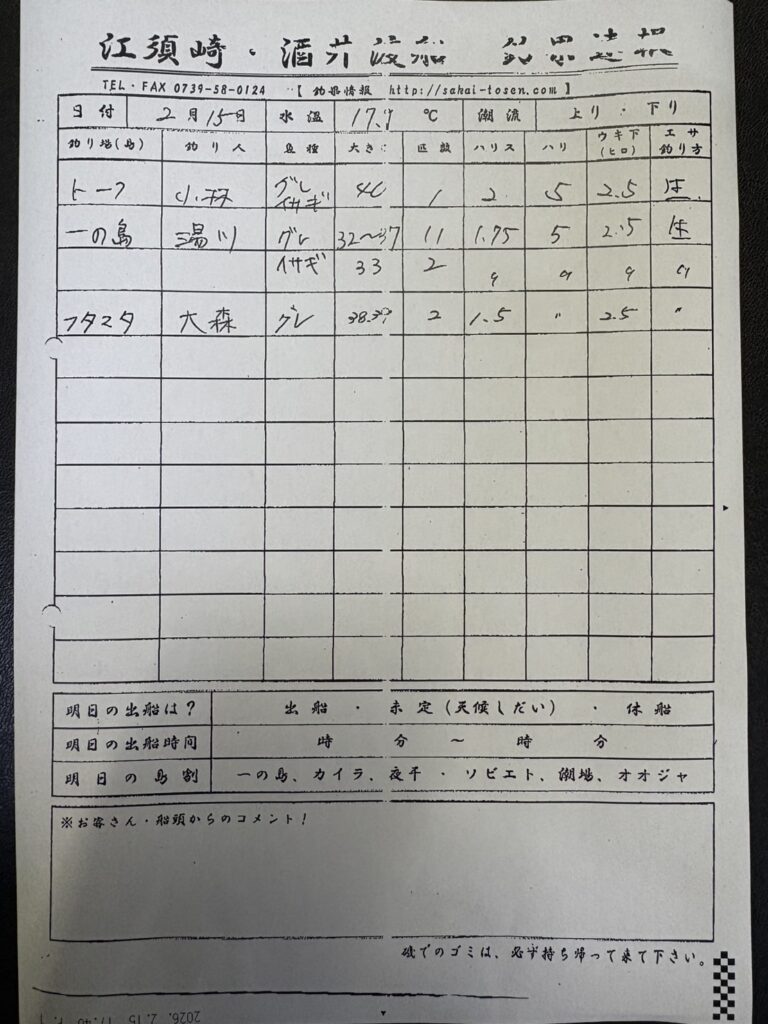 江須崎・酒井渡船 釣果速報
TEL・FAX 0739-58-0124 【 釣果情報 http://sakai-tosen.com 】
日付 2月15日 水温 17.7 ℃ 潮流 上り・下り
釣り場(島) 釣り人 魚種 大きさ 匹数 ハリス ハリ ウキ下(ヒロ) エサ釣り方
トーフ 小林 グレ イサギ 40 1 2 5 2.5
一の島 湯川 グレ 32〜37 11 1.75 5 2.5
イサギ 33 2 〃 〃 〃 〃
フタマタ 大森 グレ 2 1.5 〃 2.5 〃
明日の出船は? 出船 ・ 未定(天候しだい) ・休船
明日の出船時間 時 分 〜 時 分
明日の島割 一の島、カイラ、夜干 ・ ソビエト、潮場、オオジャ
※お客さん・船頭からのコメント!
磯でのゴミは、必ず持ち帰って来て下さい。
2026. 2.15 17:40